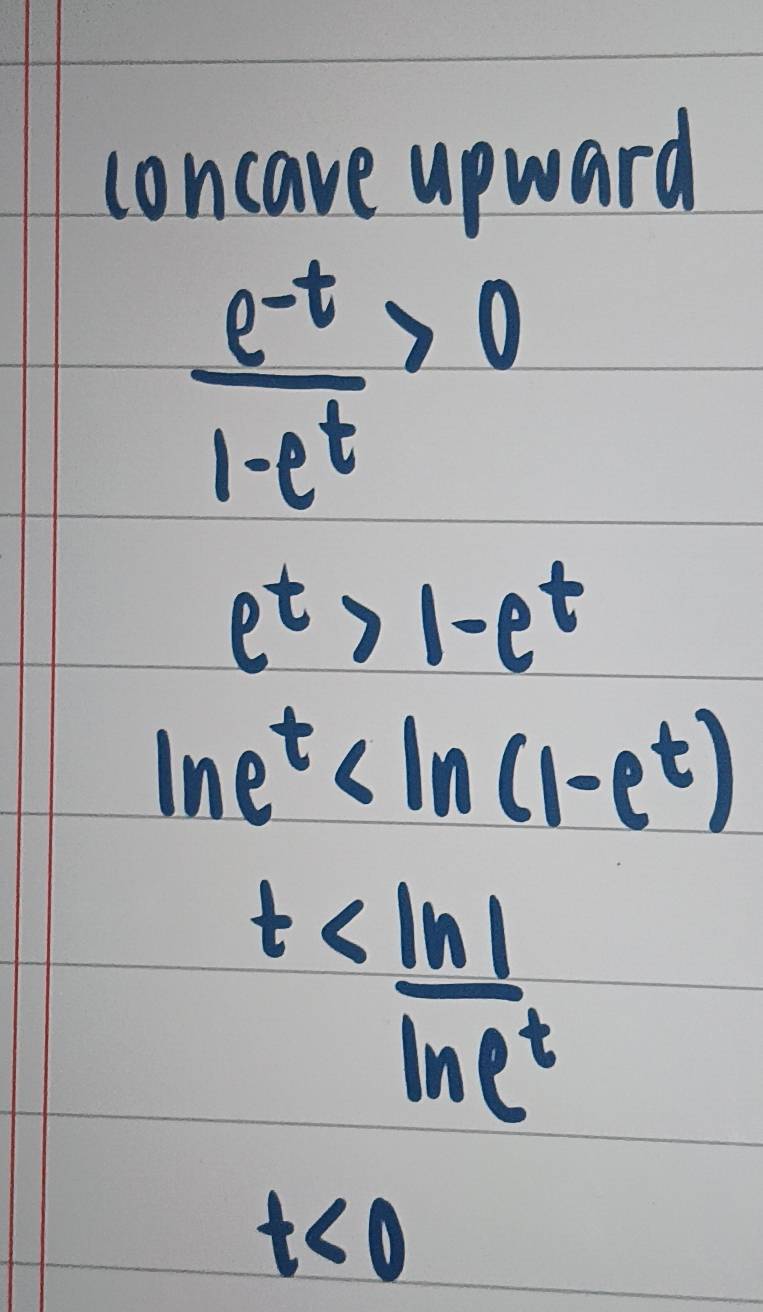 concave upward
e^-t
--- > 0
1-e^t
e^t > 1-e^t
ln e^t < ln (1-e^t)
t < ln 1
---
ln e^t
t < 0